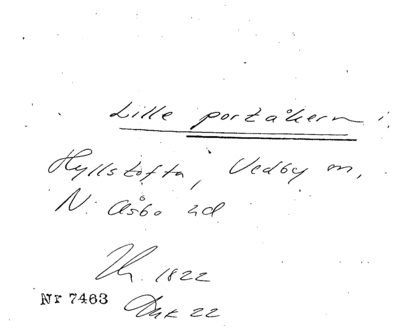 Lille portåkern i
Hyllstofta, Vedby sn,
N. Åsbo hd
1822
Nr 7463
Dnr 22